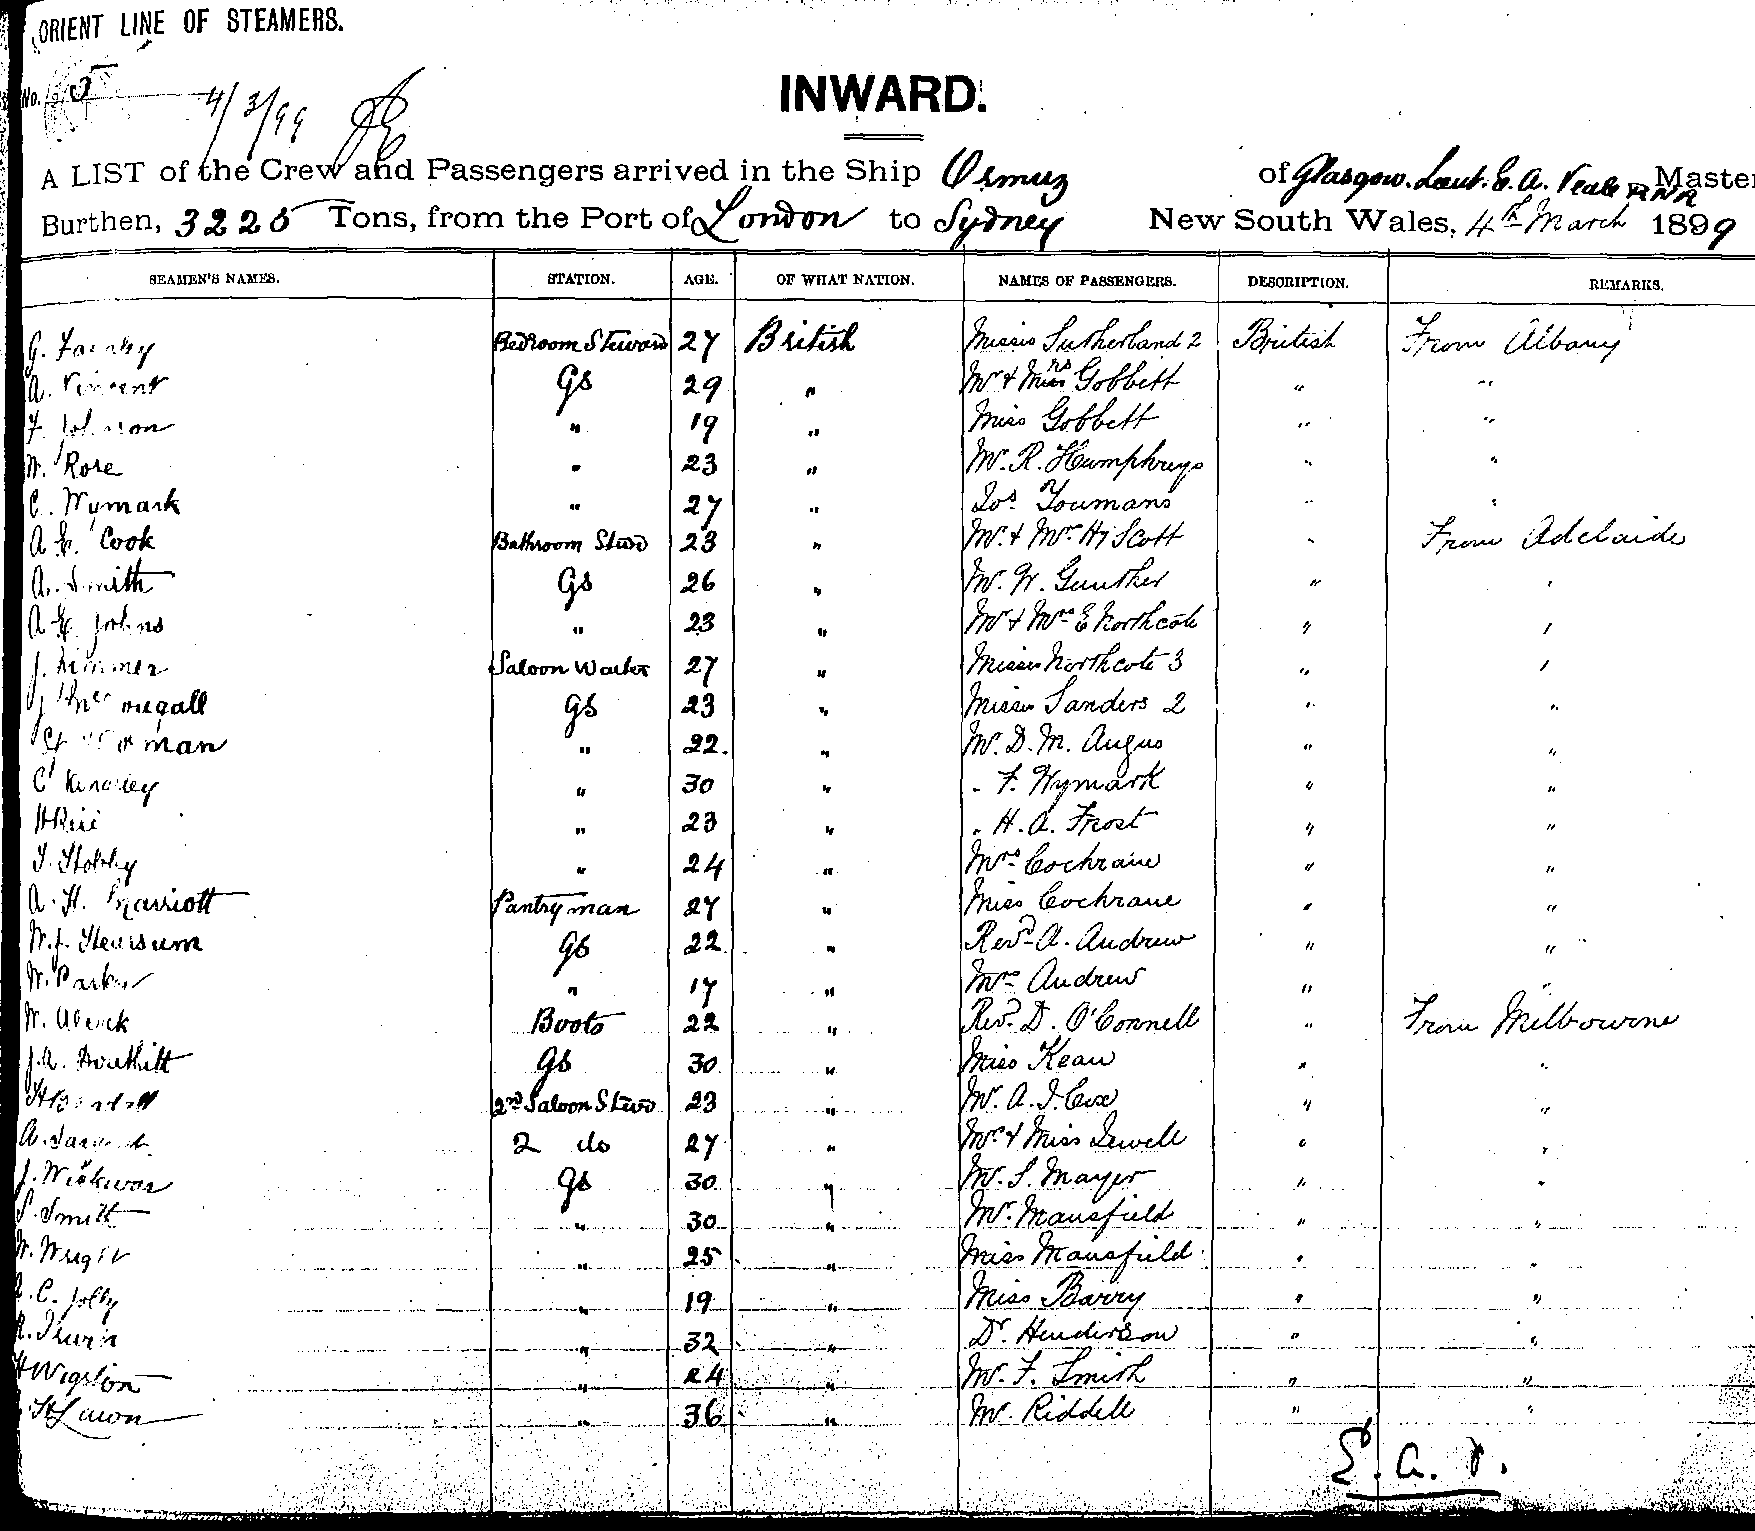 ORIENT LINE OF STEAMERS.
No. 5
4/3/99
INWARD.
A LIST of the Crew and Passengers arrived in the Ship Ormuz of Glasgow. Lieut. E. A. Veale RNR Master
Burthen, 3225 Tons, from the Port of London to Sydney New South Wales, 4th March 1899
SEAMEN'S NAMES. STATION. AGE. OF WHAT NATION. NAMES OF PASSENGERS. DESCRIPTION. REMARKS.
G. Bedroom Steward 27 British Misses Sutherland 2 British From Albany
A. Vincent Gs 29 " Mr & Mrs Gobbett " "
F. Johnson " 19 " Miss Gobbett " "
W. Rose " 23 " Mr. R. Humphreys " "
C. Wymark " 27 " Jos. Youmans " "
A E. Cook Bathroom Stwd 23 " Mr. & Mrs Hy Scott " From Adelaide
A. Smith Gs 26 " Mr. W. Gunther " "
A E. Johns " 23 " Mr & Mrs E Northcote " "
J. Rimmer Saloon Waiter 27 " Misses Northcote 3 " "
J McDougall Gs 23 " Misses Sanders 2 " "
" 22. " Mr. D. M. Angus " "
C Kingsley " 30 " " F. Wymark " "
" 23 " " H. A. Frost " "
" 24 " Mrs Cochrane " "
A. H. Marriott Pantryman 27 " Miss Cochrane " "
W. J. Hearsum Gs 22 " Revd. A. Andrew " "
W. Parker " 17 " Mrs Andrew " "
W. Boots 22 " Revd. D. O'Connell " From Melbourne
J. A. Douthitt Gs 30 " Miss Kean " "
H 2nd Saloon Stwd 23 " Mr. A. J. Cox " "
A. 2 do 27 " Mr & Miss Jewell " "
J. Wickwar Gs 30 " Mr. S. Mayer " "
S. Smith " 30 " Mr. Mansfield " "
W. Wright " 25 " Miss Mansfield " "
C. Jolly " 19 " Miss Barry " "
R. Irwin " 32 " Dr. Henderson " "
H Wigston " 24 " Mr. F. Smith " "
H Lawn " 36 " Mr. Riddell " "
E. A. V.